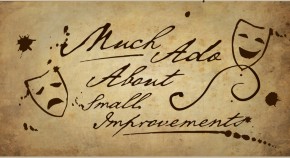 Much Ado
About
Small
Improvements